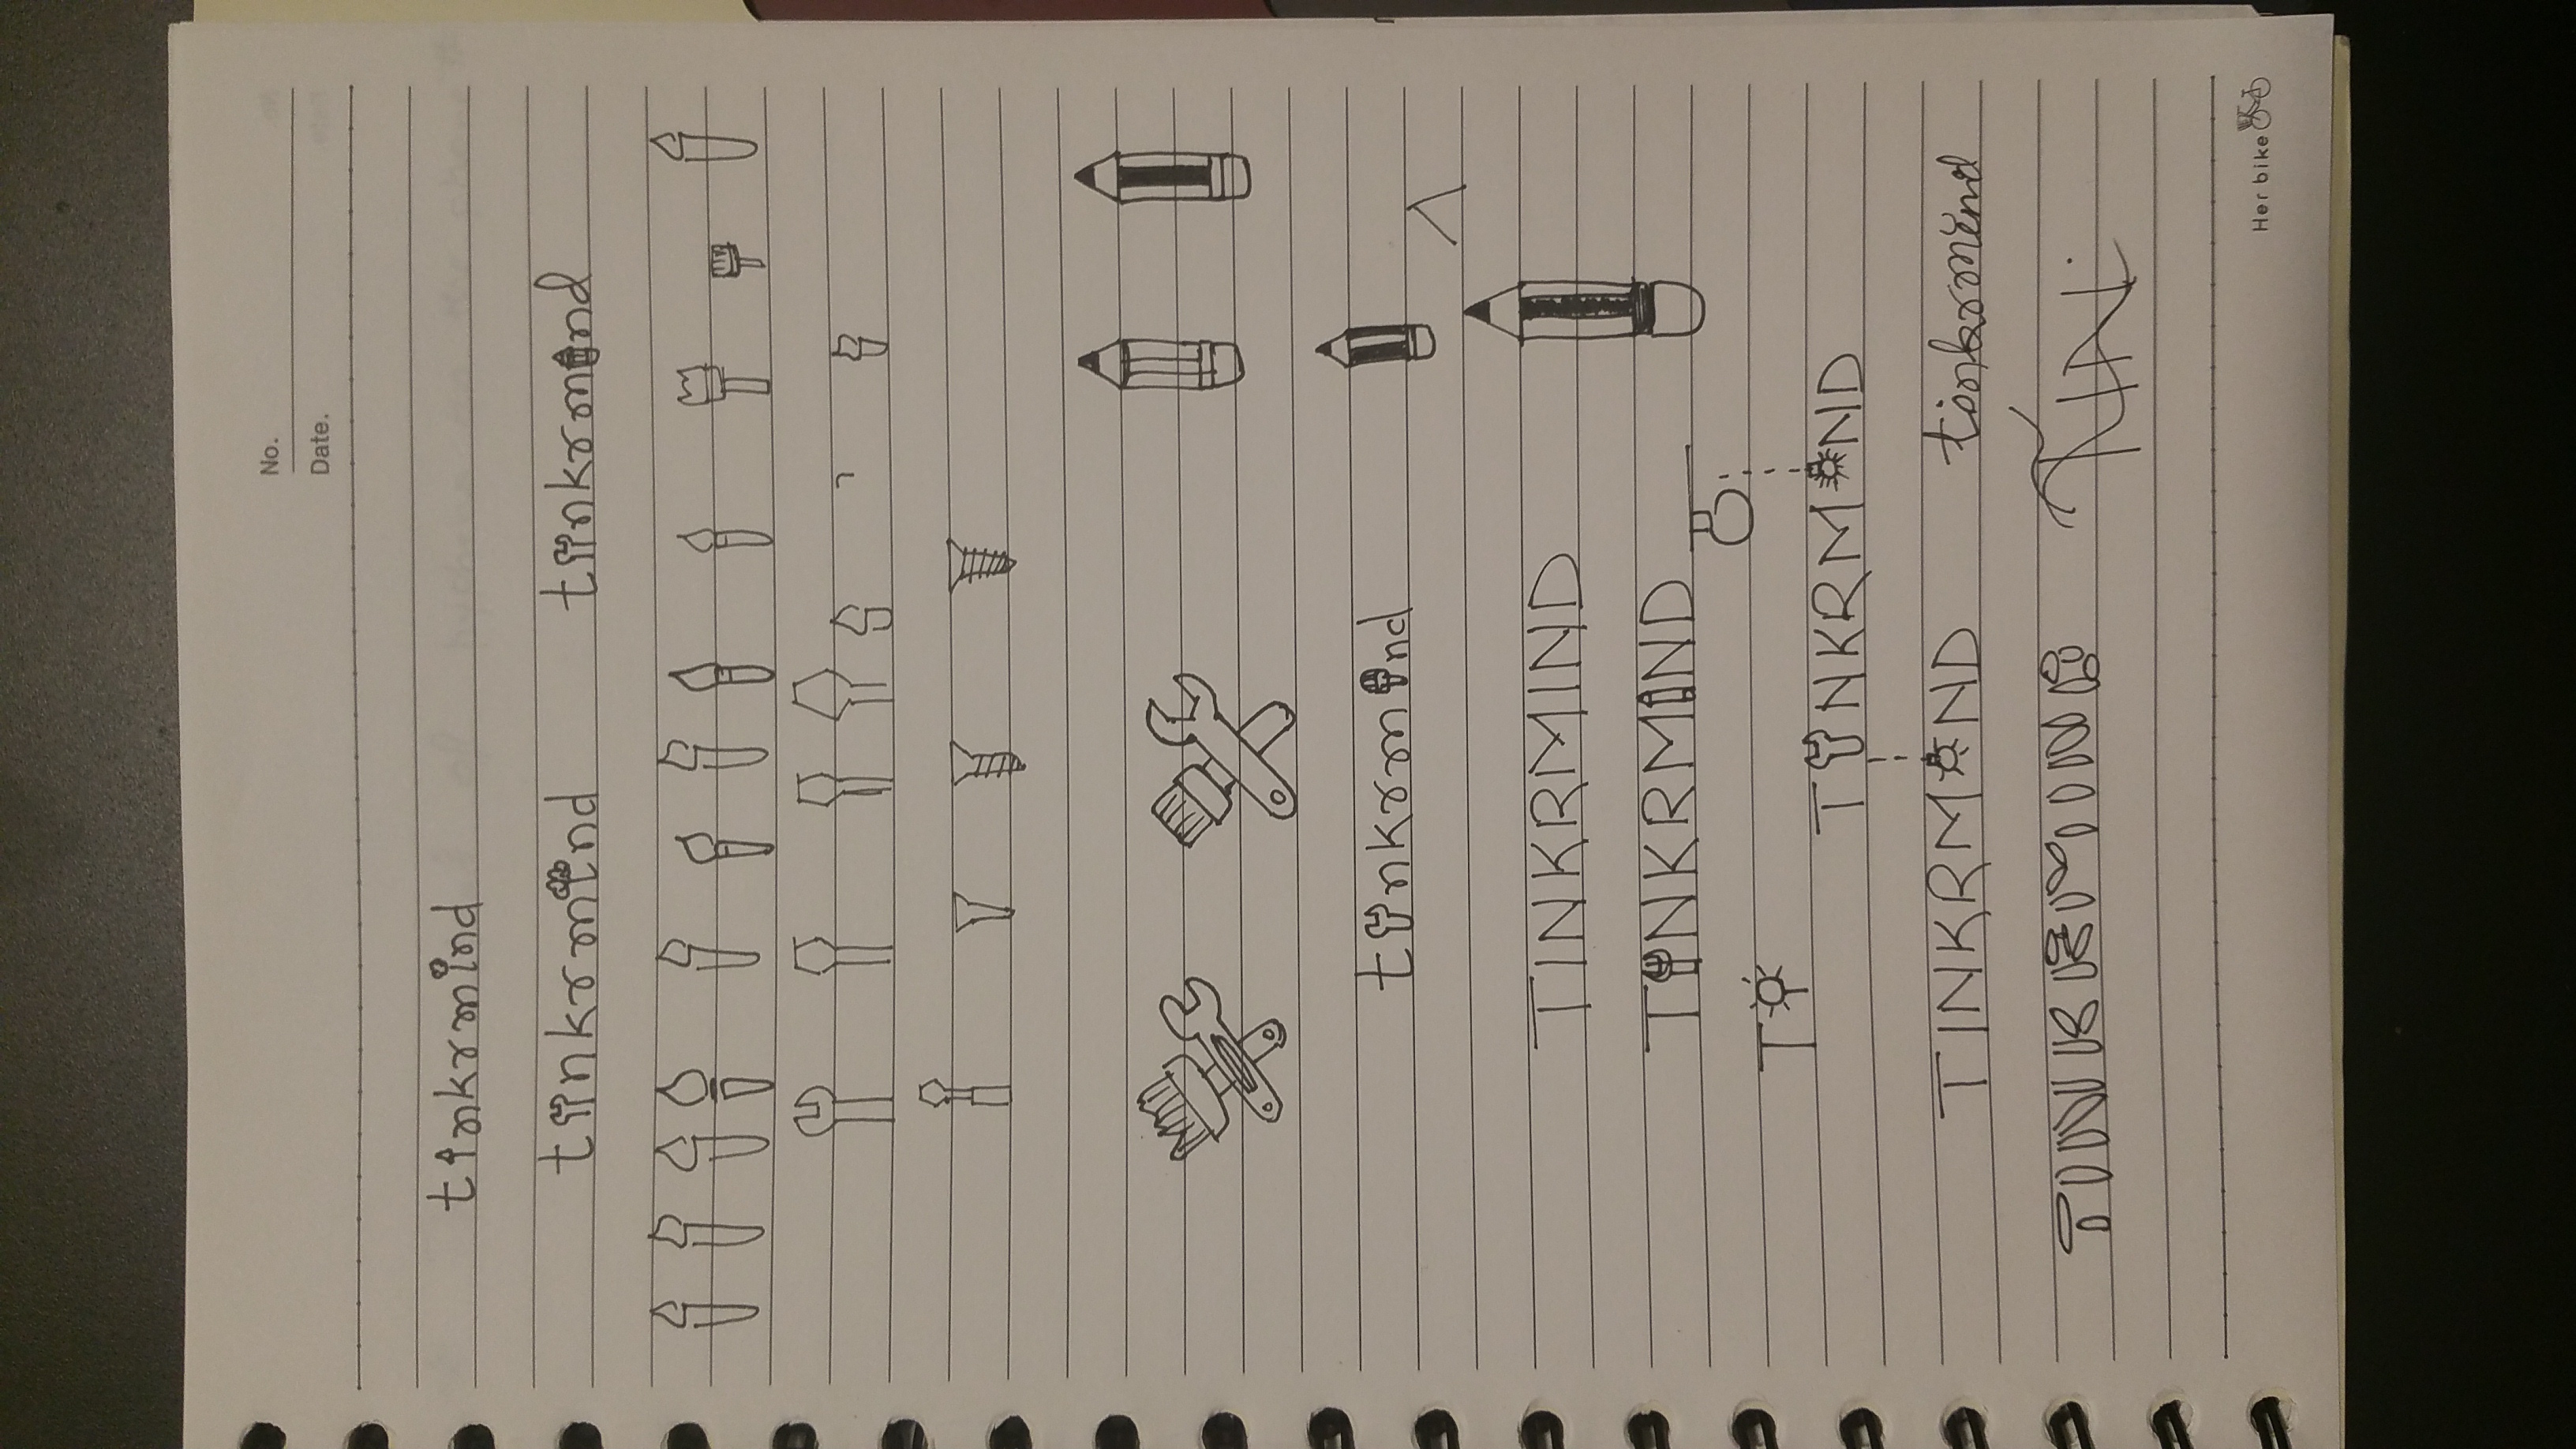 No.
Date.
tinkrmind
tinkrmind tinkrmind
tinkrmind
TINKRMIND
TINKRMIND
T
TINKRMIND
TINKRMIND tinkrmind
TINKRMIND TIN
Her bike